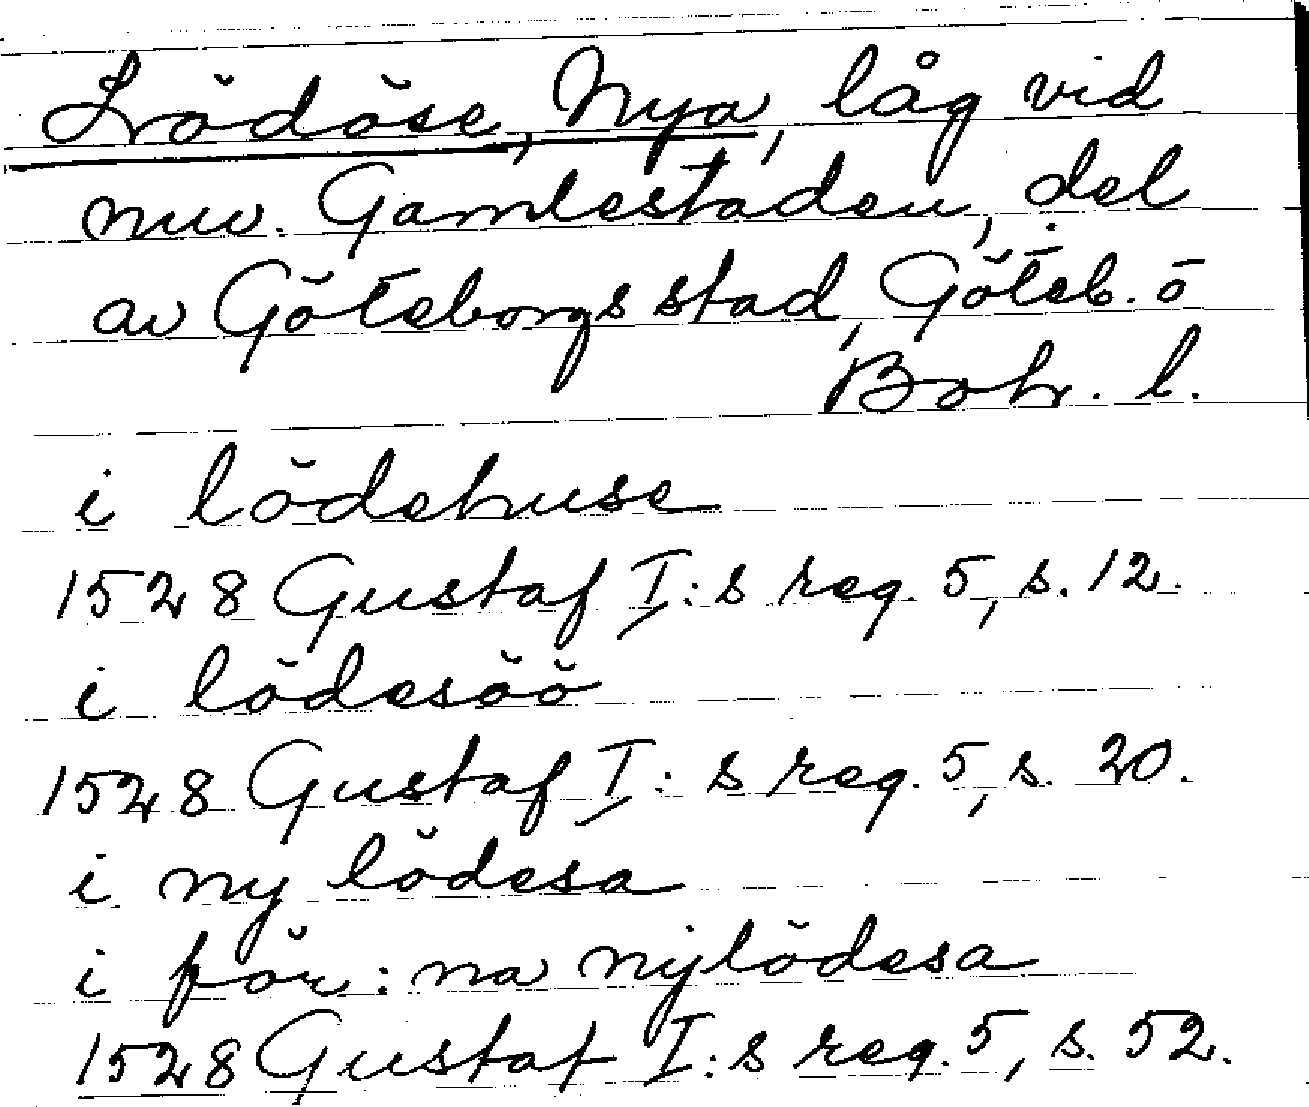 Lödöse, Nya, låg vid
nuv. Gamlestaden, del
av Göteborgs stad, Göteb. o
Boh. l.
i lödehuse
1528 Gustaf I:s reg. 5, s. 12.
i lödesöö
1528 Gustaf I:s reg. 5, s. 20.
i ny lödesa
i för:na nylödesa
1528 Gustaf I:s reg. 5, s. 52.